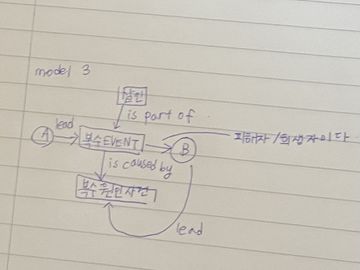 model 3
is part of
lead
A
복수EVENT
B
피해자/희생자이다
is caused by
복수원인사건
lead